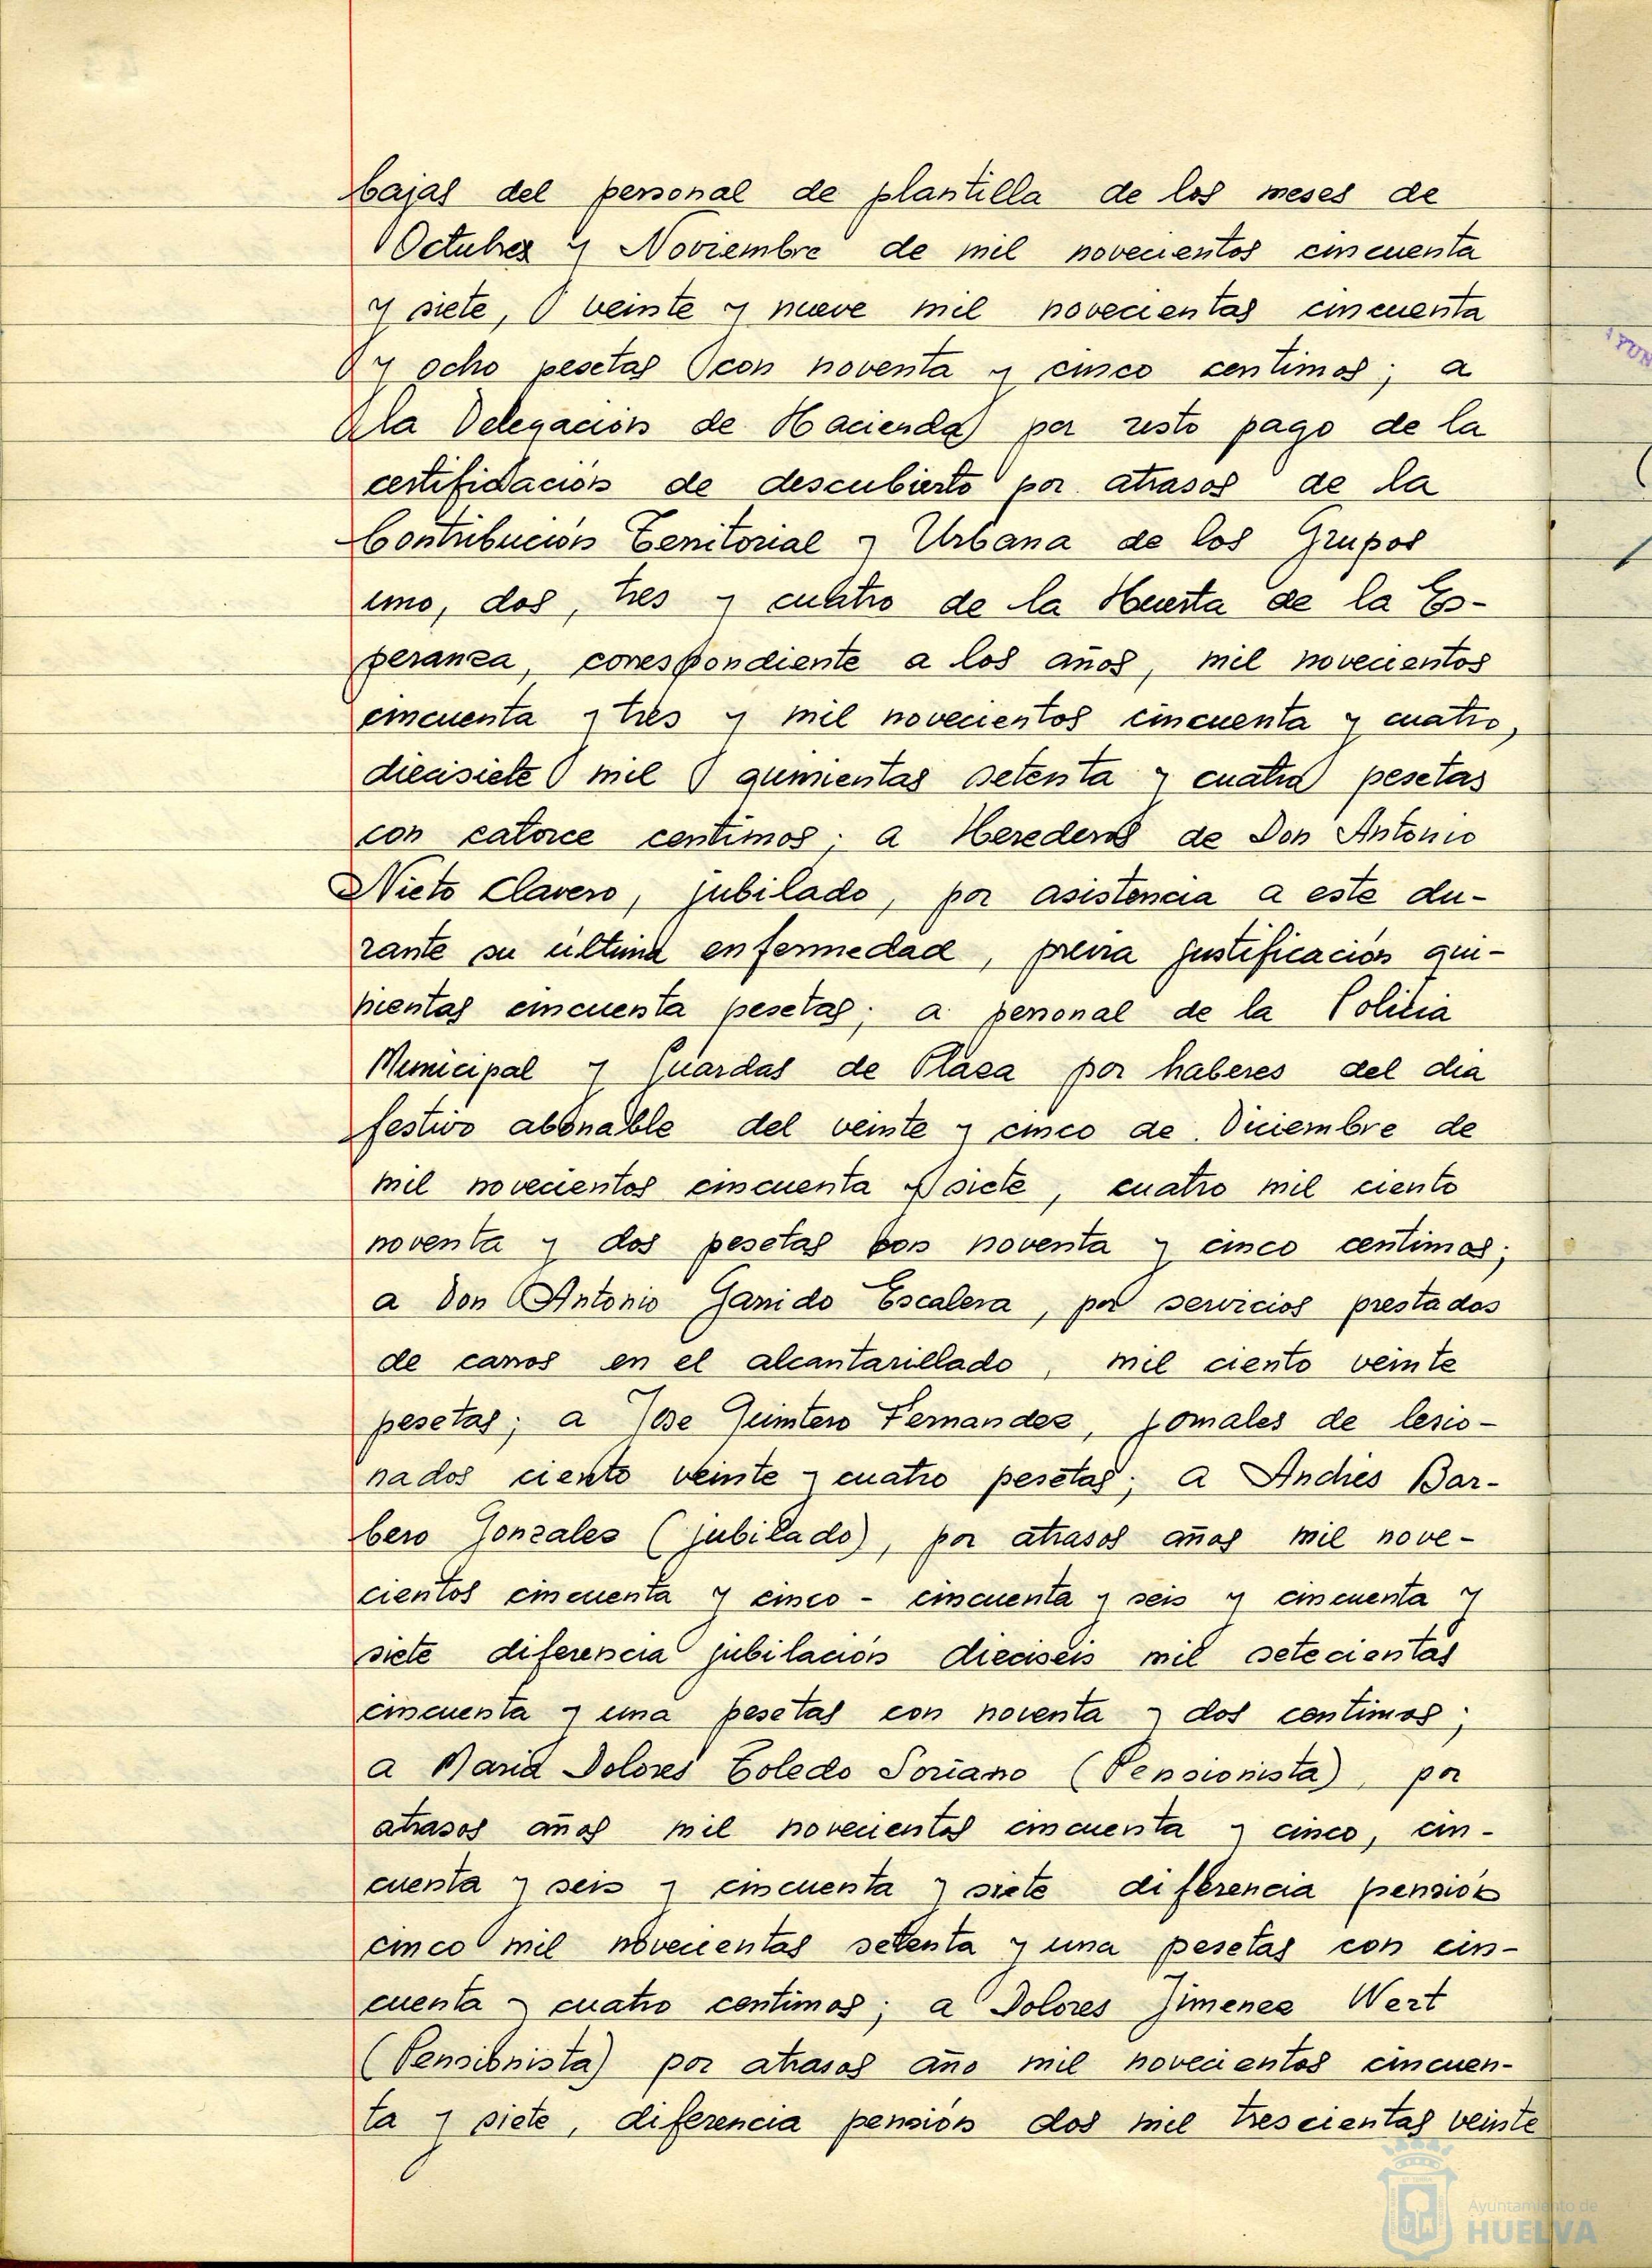 bajas del personal de plantilla de los meses de
Octubre y Noviembre de mil novecientos cincuenta
y siete, veinte y nueve mil novecientas cincuenta
y ocho pesetas con noventa y cinco centimos; a
la Delegación de Hacienda por resto pago de la
certificación de descubierto por atrasos de la
Contribución Territorial y Urbana de los Grupos
uno, dos, tres y cuatro de la Huerta de la Es-
peranza, correspondiente a los años, mil novecientos
cincuenta y tres y mil novecientos cincuenta y cuatro,
diecisiete mil quinientas setenta y cuatro pesetas
con catorce centimos; a Herederos de Don Antonio
Nieto Clavero, jubilado, por asistencia a este du-
rante su última enfermedad, previa justificación qui-
nientas cincuenta pesetas; a personal de la Policia
Municipal y Guardas de Plaza por haberes del dia
festivo abonable del veinte y cinco de Diciembre de
mil novecientos cincuenta y siete, cuatro mil ciento
noventa y dos pesetas con noventa y cinco centimos;
a Don Antonio Garrido Escalera, por servicios prestados
de carros en el alcantarillado, mil ciento veinte
pesetas; a Jose Quintero Fernandez, jornales de lesio-
nados ciento veinte y cuatro pesetas; a Andres Bar-
bero Gonzales (jubilado), por atrasos años mil nove-
cientos cincuenta y cinco - cincuenta y seis y cincuenta y
siete diferencia jubilación dieciseis mil setecientas
cincuenta y una pesetas con noventa y dos centimos;
a Maria Dolores Toledo Soriano (Pensionista), por
atrasos años mil novecientos cincuenta y cinco, cin-
cuenta y seis y cincuenta y siete diferencia pensión
cinco mil novecientas setenta y una pesetas con cin-
cuenta y cuatro centimos; a Dolores Jimenez Wert
(Pensionista) por atrasos año mil novecientos cincuen-
ta y siete, diferencia pensión dos mil trescientas veinte
Ayuntamiento de
HUELVA